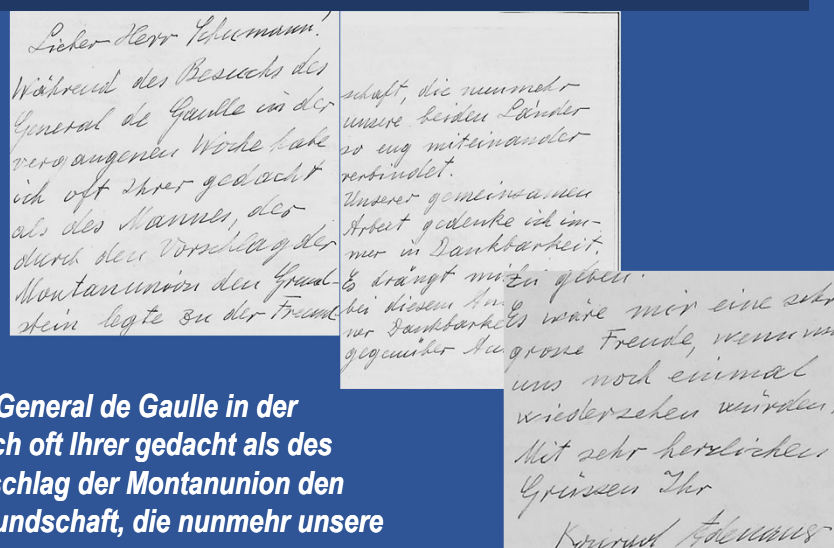 Lieber Herr Schumann!
Während des Besuchs des
General de Gaulle in der
vergangenen Woche habe
ich oft Ihrer gedacht
als des Mannes, der
durch den Vorschlag der
Montanunion den Grund-
stein legte zu der Freund-
schaft, die nunmehr
unsere beiden Länder
so eng miteinander
verbindet.
Unserer gemeinsamen
Arbeit gedenke ich im-
mer in Dankbarkeit.
Es drängt mi
bei diesem An
ner Dankbarke
gegenüber
zu geben.
Es wäre mir eine sehr
grosse Freude, wenn
uns noch einmal
wiedersehen würden.
Mit sehr herzlichen
Grüssen Ihr
Konrad Adenauer
General de Gaulle in der
ch oft Ihrer gedacht als des
schlag der Montanunion den
undschaft, die nunmehr unsere